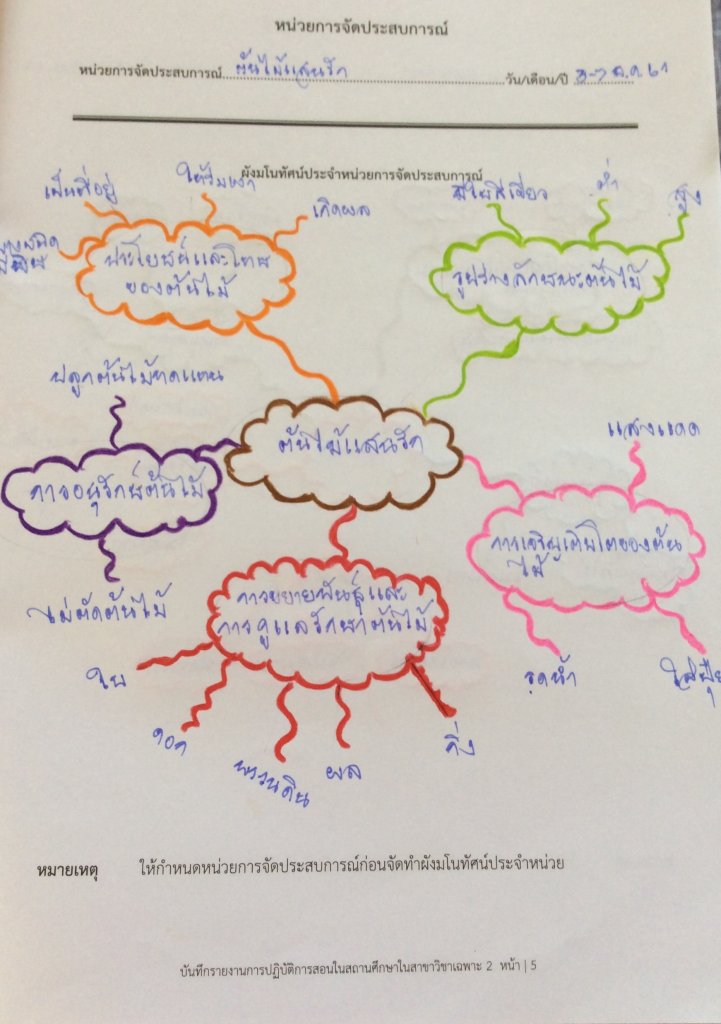 หน่วยการจัดประสบการณ์
หน่วยการจัดประสบการณ์ ต้นไม้แสนรัก วัน/เดือน/ปี 3-7 ส.ค. 61
ผังมโนทัศน์ประจำหน่วยการจัดประสบการณ์
เป็นที่อยู่
ให้ร่มเงา
เกิดผล
มีพิษ
ประโยชน์และโทษ
ของต้นไม้
มีใบสีเขียว
ต่ำ
สูง
รูปร่างลักษณะต้นไม้
ปลูกต้นไม้ทดแทน
การอนุรักษ์ต้นไม้
ไม่ตัดต้นไม้
ต้นไม้แสนรัก
แสงแดด
การเจริญเติบโตของต้น
ไม้
รดน้ำ
ใส่ปุ๋ย
การขยายพันธุ์และ
การดูแลรักษาต้นไม้
ใบ
ดอก
พรวนดิน
ผล
กิ่ง
หมายเหตุ ให้กำหนดหน่วยการจัดประสบการณ์ก่อนจัดทำผังมโนทัศน์ประจำหน่วย
บันทึกรายงานการปฏิบัติการสอนในสถานศึกษาในสาขาวิชาเฉพาะ 2 หน้า | 5